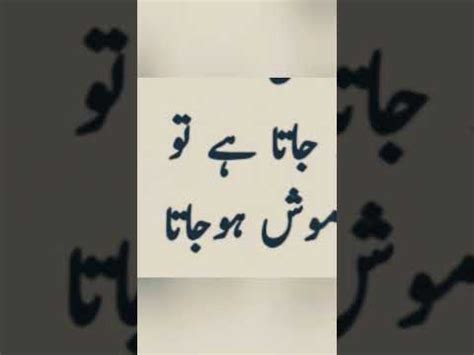 جاتا ہے تو
موش ہوجاتا